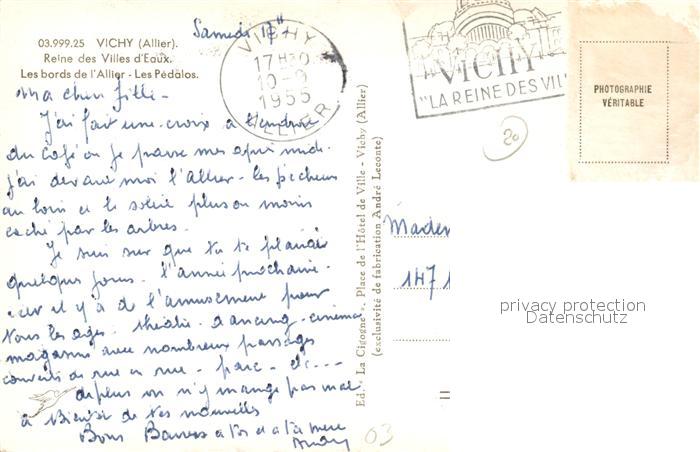 Samedi 17H
03.999.25 VICHY (Allier).
Reine des Villes d'Eaux.
Les bords de l'Allier - Les Pédalos.
VICHY
17 H30
10-9
1955
ALLIER
VICHY
"LA REINE DES VIL
PHOTOGRAPHIE
VÉRITABLE
20
Ma chère fille -
J'ai fait une croix à l'endroit
du café où je passe mes après midi
j'ai devant moi l'Allier - les pêcheurs
au loin et le soleil plus ou moins
caché par les arbres.
Je suis sur que tu te plairais
quelques jours l'année prochaine.
car il y a de l'amusement pour
tous les ages. théatre. dancing. cinéma
magasins avec nombreux passages
couverts de rue en rue - parc - etc---
de plus on n'y mange pas mal
à Bientot de tes nouvelles
Bons Baisers à toi et à ta mère
Ed. La Cigogne, Place de l'Hôtel de Ville - Vichy (Allier)
(exclusivité de fabrication André Leconte)
147
privacy protection
Datenschutz
03